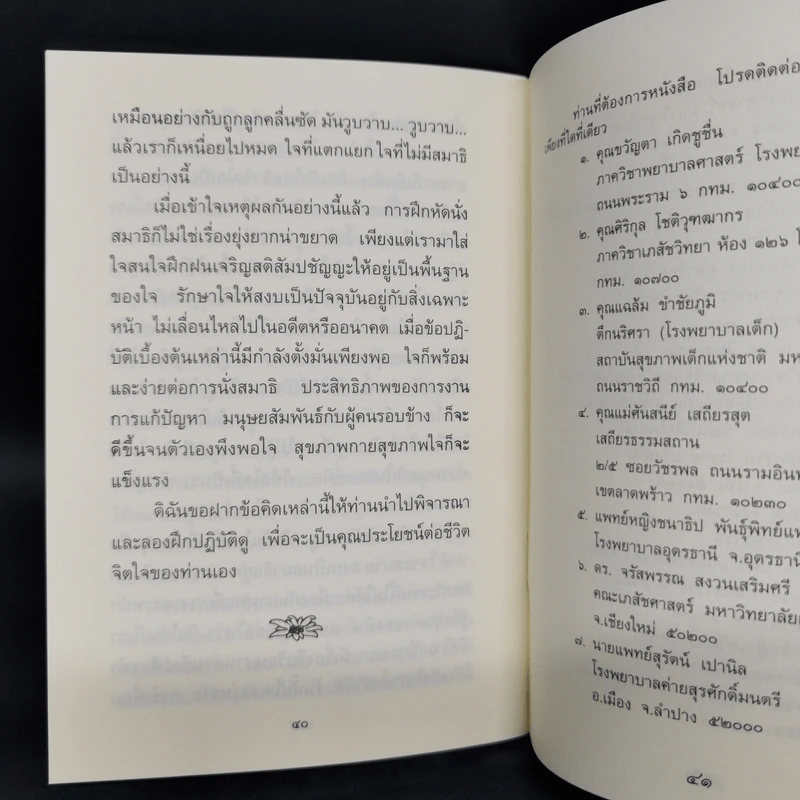 เหมือนอย่างกับถูกลูกคลื่นซัด มันวูบวาบ... วูบวาบ...
แล้วเราก็เหนื่อยไปหมด ใจที่แตกแยก ใจที่ไม่มีสมาธิ
เป็นอย่างนี้
เมื่อเข้าใจเหตุผลกันอย่างนี้แล้ว การฝึกหัดนั่ง
สมาธิก็ไม่ใช่เรื่องยุ่งยากน่าขยาด เพียงแต่เรามาใส่
ใจสนใจฝึกฝนเจริญสติสัมปชัญญะให้อยู่เป็นพื้นฐาน
ของใจ รักษาใจให้สงบเป็นปัจจุบันอยู่กับสิ่งเฉพาะ
หน้า ไม่เลื่อนไหลไปในอดีตหรืออนาคต เมื่อข้อปฏิ-
บัติเบื้องต้นเหล่านี้มีกำลังตั้งมั่นเพียงพอ ใจก็พร้อม
และง่ายต่อการนั่งสมาธิ ประสิทธิภาพของการงาน
การแก้ปัญหา มนุษยสัมพันธ์กับผู้คนรอบข้าง ก็จะ
ดีขึ้นจนตัวเองพึงพอใจ สุขภาพกายสุขภาพใจก็จะ
แข็งแรง
ดิฉันขอฝากข้อคิดเหล่านี้ให้ท่านนำไปพิจารณา
และลองฝึกปฏิบัติดู เพื่อจะเป็นคุณประโยชน์ต่อชีวิต
จิตใจของท่านเอง
๔๐
ท่านที่ต้องการหนังสือ โปรดติดต่อ
เพียงที่ใดที่เดียว
๑. คุณขวัญตา เกิดชูชื่น
ภาควิชาพยาบาลศาสตร์ โรงพยา
ถนนพระราม ๖ กทม. ๑๐๔๐๐
๒. คุณศิริกุล โชติวุฑฒากร
ภาควิชาเภสัชวิทยา ห้อง ๑๒๖
กทม. ๑๐๗๐๐
๓. คุณแฉล้ม ขำชัยภูมิ
ตึกนริศรา (โรงพยาบาลเด็ก)
สถาบันสุขภาพเด็กแห่งชาติ มห
ถนนราชวิถี กทม. ๑๐๔๐๐
๔. คุณแม่ศันสนีย์ เสถียรสุต
เสถียรธรรมสถาน
๒/๕ ซอยวัชรพล ถนนรามอินท
เขตลาดพร้าว กทม. ๑๐๒๓๐
๕. แพทย์หญิงชนาธิป พันธุ์พิทย์แพ
โรงพยาบาลอุดรธานี จ.อุดรธานี
๖. ดร. จรัสพรรณ สงวนเสริมศรี
คณะเภสัชศาสตร์ มหาวิทยาลัย
จ.เชียงใหม่ ๕๐๒๐๐
๗. นายแพทย์สุรัตน์ เปานิล
โรงพยาบาลค่ายสุรศักดิ์มนตรี
อ.เมือง จ.ลำปาง ๕๒๐๐๐
๔๑